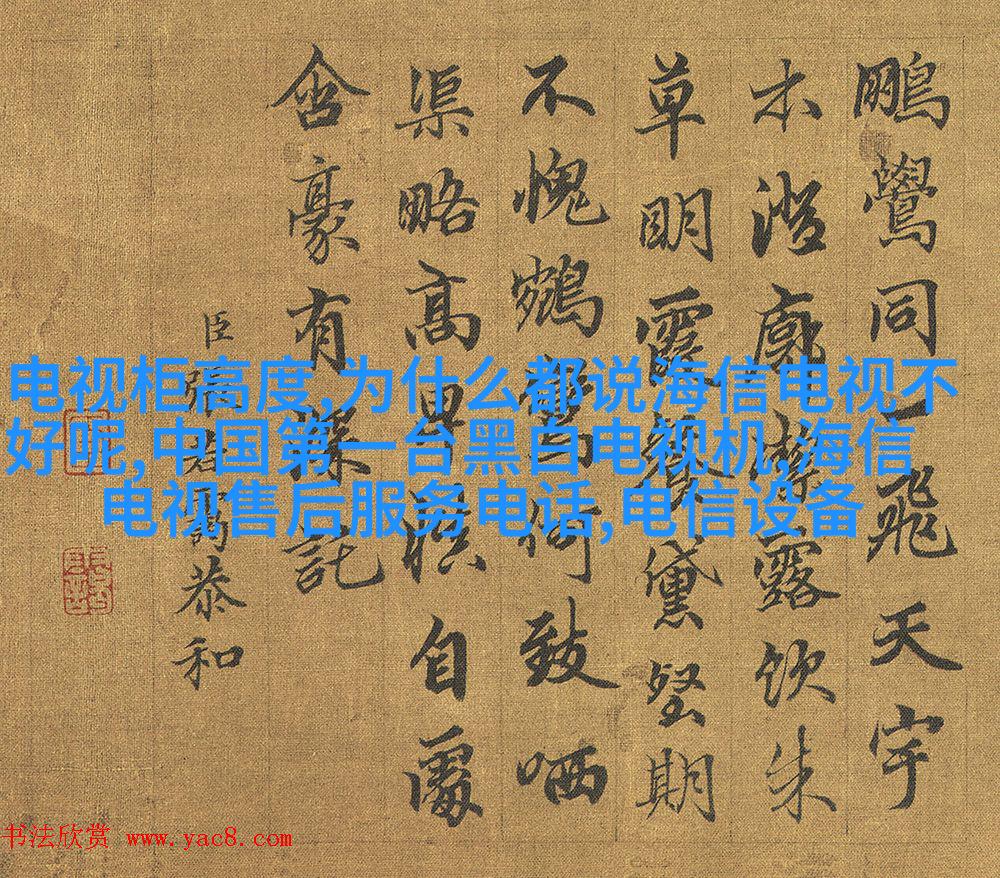 鵬鷽同一飛天宇
本澄廓潔露飲朱
草明霞黛壑期
不愧何致哂
渠略高卑自屬
含豪有深託
臣張恭和
电视柜高度,为什么都说海信电视不
好呢,中国第一台黑白电视机,海信
电视售后服务电话,电信设备
书法欣赏 www.yac8.com